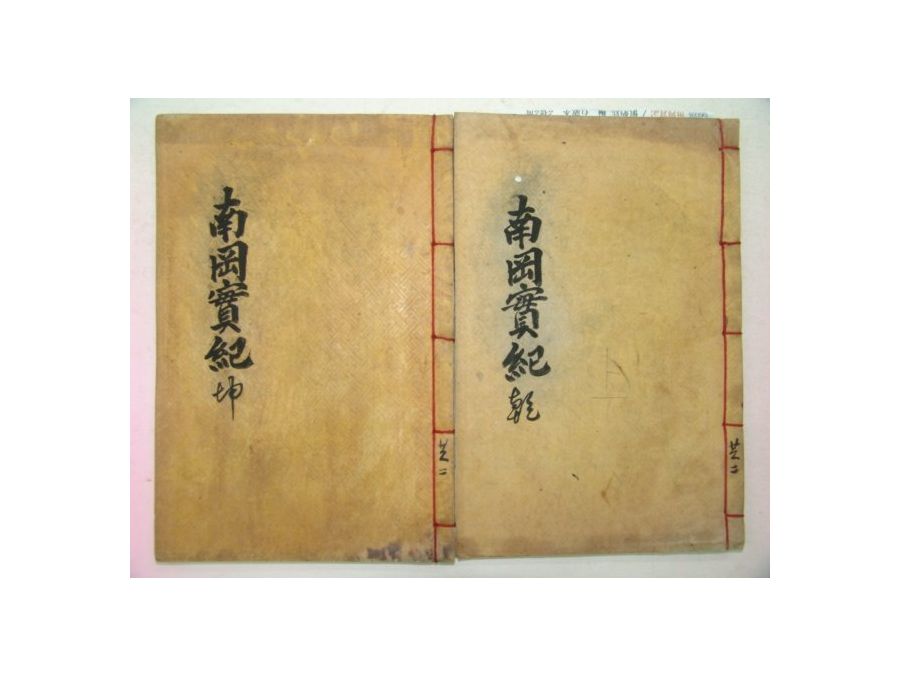 南岡實紀 乾
共二
南岡實紀 坤
共二